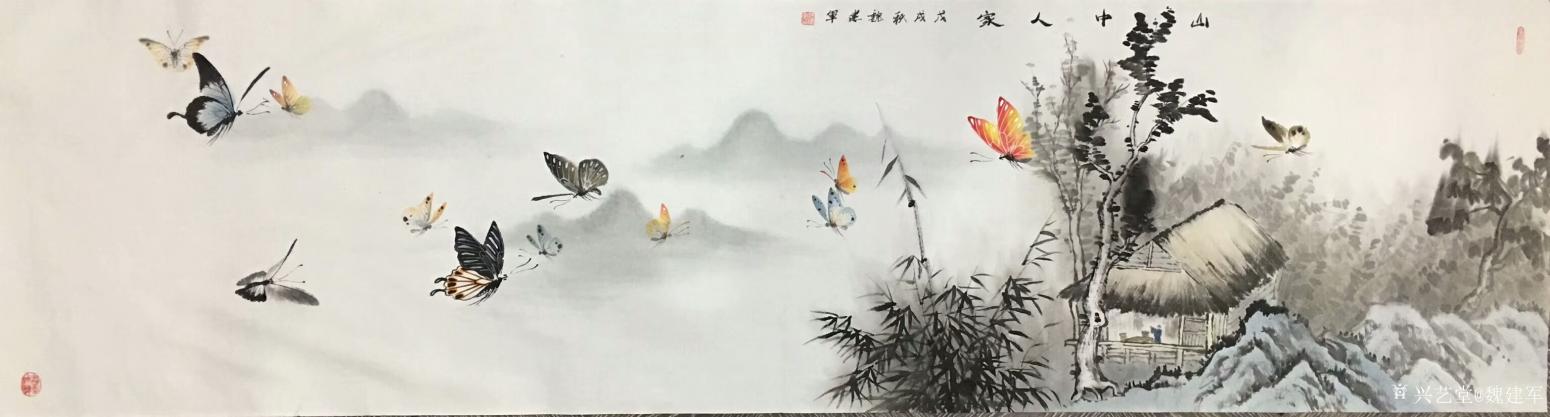 山中人家 戊戌秋 魏建军
兴艺堂@魏建军